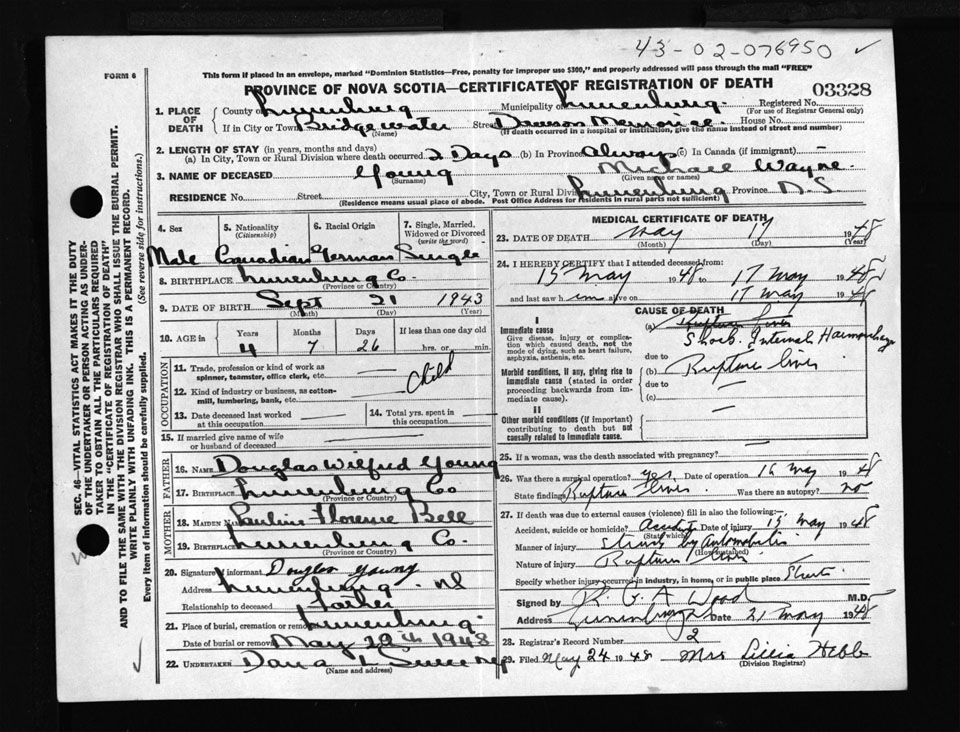 43-02-076950 ✓
FORM 6
This form if placed in an envelope, marked "Dominion Statistics—Free, penalty for improper use $300," and properly addressed will pass through the mail "FREE"
PROVINCE OF NOVA SCOTIA—CERTIFICATE OF REGISTRATION OF DEATH
03328
SEC. 46—VITAL STATISTICS ACT MAKES IT THE DUTY
OF THE UNDERTAKER OR PERSON ACTING AS UNDER-
TAKER TO OBTAIN ALL THE PARTICULARS REQUIRED
IN THE "CERTIFICATE OF REGISTRATION OF DEATH"
AND TO FILE THE SAME WITH THE DIVISION REGISTRAR WHO SHALL ISSUE THE BURIAL PERMIT.
WRITE PLAINLY WITH UNFADING INK. THIS IS A PERMANENT RECORD.
Every item of information should be carefully supplied. (See reverse side for instructions.)
1. PLACE OF DEATH
County of Lunenburg Municipality of Lunenburg. Registered No.
(For use of Registrar General only)
If in City or Town Bridgewater Street Dawson Memorial House No.
(Name) (If death occurred in a hospital or institution, give the name instead of street and number)
2. LENGTH OF STAY (in years, months and days)
(a) In City, Town or Rural Division where death occurred 2 Days (b) In Province Always (c) In Canada (if immigrant)
3. NAME OF DECEASED Young Michael Wayne.
(Surname) (Given name or names)
RESIDENCE No. Street City, Town or Rural Div. Lunenburg Province N.S
(Residence means usual place of abode. Post Office Address for residents in rural parts not sufficient)
4. Sex 5. Nationality (Citizenship) 6. Racial Origin 7. Single, Married, Widowed or Divorced (write the word)
Male Canadian German Single
8. BIRTHPLACE Lunenburg Co.
(Province or County)
9. DATE OF BIRTH Sept 21 1943
(Month) (Day) (Year)
10. AGE in Years Months Days If less than one day old
4 7 26 hrs. or min.
OCCUPATION
11. Trade, profession or kind of work as
spinner, teamster, office clerk, etc.
Child
12. Kind of industry or business, as cotton-
mill, lumbering, bank, etc.
13. Date deceased last worked
at this occupation
14. Total yrs. spent in
this occupation
15. If married give name of wife
or husband of deceased
FATHER
16. NAME Douglas Wilfred Young
17. BIRTHPLACE Lunenburg Co
(Province or Country)
MOTHER
18. MAIDEN NAME Pauline Florence Bell
19. BIRTHPLACE Lunenburg Co.
(Province or Country)
20. Signature of informant Douglas Young
Address Lunenburg. NS
Relationship to deceased Father
21. Place of burial, cremation or removal Lunenburg.
Date of burial or removal May 20th 1948
22. UNDERTAKER Dana L Sweeney
(Name and address)
MEDICAL CERTIFICATE OF DEATH
23. DATE OF DEATH May 17 1948
(Month) (Day) (Year)
24. I HEREBY CERTIFY that I attended deceased from:
15 May 1948 to 17 May 1948
and last saw him alive on 17 May 1948
CAUSE OF DEATH
I
Immediate cause
Give disease, injury or complica-
tion which caused death, not the
mode of dying, such as heart failure,
asphyxia, asthenia, etc.
(a) Rupture Liver
Shock. Internal Haemorrhage
due to
Morbid conditions, if any, giving rise to
immediate cause (stated in order
proceeding backwards from im-
mediate cause).
(b) Rupture liver
due to
(c)
II
Other morbid conditions (if important)
contributing to death but not
causally related to immediate cause.
25. If a woman, was the death associated with pregnancy?
26. Was there a surgical operation? yes. Date of operation 16 May 1948
State findings Rupture liver. Was there an autopsy? no
27. If death was due to external causes (violence) fill in also the following:
Accident, suicide or homicide? Accident Date of injury 15 May 1948
(State which)
Manner of injury Struck by Automobile
(How sustained)
Nature of injury Rupture liver
Specify whether injury occurred in industry, in home, or in public place Street
Signed by R. G. A Wood M.D.
Address Lunenburg Date 21 May 1948
28. Registrar's Record Number 2
29. Filed May 24 1948 Mrs Lillia Hebb
(Division Registrar)